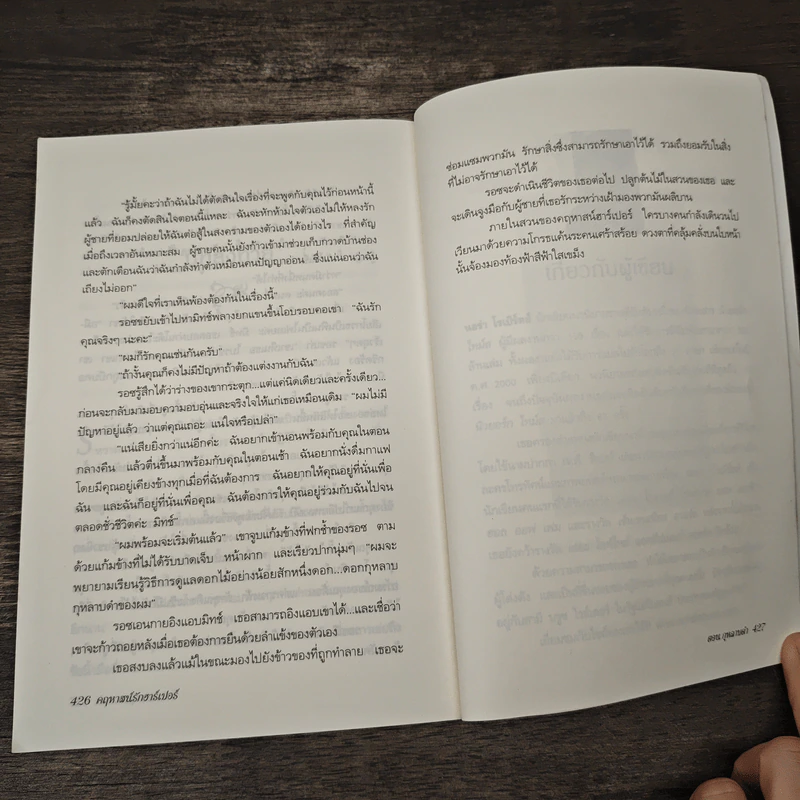 "รู้มั้ยคะว่าถ้าฉันไม่ได้ตัดสินใจเรื่องที่จะพูดกับคุณไว้ก่อนหน้านี้
แล้ว ฉันก็คงตัดสินใจตอนนี้แหละ ฉันจะหักห้ามใจตัวเองไม่ให้หลงรัก
ผู้ชายที่ยอมปล่อยให้ฉันต่อสู้ในสงครามของตัวเองได้อย่างไร ที่สำคัญ
เมื่อถึงเวลาอันเหมาะสม ผู้ชายคนนั้นยังก้าวเข้ามาช่วยเก็บกวาดบ้านช่อง
และตักเตือนฉันว่าฉันกำลังทำตัวเหมือนคนปัญญาอ่อน ซึ่งแน่นอนว่าฉัน
เถียงไม่ออก"
"ผมดีใจที่เราเห็นพ้องต้องกันในเรื่องนี้"
รอซขยับเข้าไปหามิทช์พลางยกแขนขึ้นโอบรอบคอเขา "ฉันรัก
คุณจริงๆ นะคะ"
"ผมก็รักคุณเช่นกันครับ"
"ถ้างั้นคุณก็คงไม่มีปัญหาถ้าต้องแต่งงานกับฉัน"
รอซรู้สึกได้ว่าร่างของเขากระตุก...แต่แค่นิดเดียวและครั้งเดียว...
ก่อนจะกลับมามอบความอบอุ่นและจริงใจให้แก่เธอเหมือนเดิม "ผมไม่มี
ปัญหาอยู่แล้ว ว่าแต่คุณเถอะ แน่ใจหรือเปล่า"
"แน่เสียยิ่งกว่าแน่อีกค่ะ ฉันอยากเข้านอนพร้อมกับคุณในตอน
กลางคืน แล้วตื่นขึ้นมาพร้อมกับคุณในตอนเช้า ฉันอยากนั่งดื่มกาแฟ
โดยมีคุณอยู่เคียงข้างทุกเมื่อที่ฉันต้องการ ฉันอยากให้คุณอยู่ที่นั่นเพื่อ
ฉัน และฉันก็อยู่ที่นั่นเพื่อคุณ ฉันต้องการให้คุณอยู่ร่วมกับฉันไปจน
ตลอดชั่วชีวิตค่ะ มิทช์"
"ผมพร้อมจะเริ่มต้นแล้ว" เขาจูบแก้มข้างที่ฟกช้ำของรอซ ตาม
ด้วยแก้มข้างที่ไม่ได้รับบาดเจ็บ หน้าผาก และเรียวปากนุ่มๆ "ผมจะ
พยายามเรียนรู้วิธีการดูแลดอกไม้อย่างน้อยสักหนึ่งดอก...ดอกกุหลาบ
กุหลาบดำของผม"
รอซเอนกายอิงแอบมิทช์ เธอสามารถอิงแอบเขาได้...และเชื่อว่า
เขาจะก้าวถอยหลังเมื่อเธอต้องการยืนด้วยลำแข้งของตัวเอง
เธอสงบลงแล้วแม้ในขณะมองไปยังข้าวของที่ถูกทำลาย เธอจะ
426 คฤหาสน์รักฮาร์เปอร์
ซ่อมแซมพวกมัน รักษาสิ่งซึ่งสามารถรักษาเอาไว้ได้ รวมถึงยอมรับในสิ่ง
ที่ไม่อาจรักษาเอาไว้ได้
รอซจะดำเนินชีวิตของเธอต่อไป ปลูกต้นไม้ในสวนของเธอ และ
จะเดินจูงมือกับผู้ชายที่เธอรักระหว่างเฝ้ามองพวกมันผลิบาน
ภายในสวนของคฤหาสน์ฮาร์เปอร์ ใครบางคนกำลังเดินวนไป
เวียนมาด้วยความโกรธแค้นระคนเศร้าสร้อย ดวงตาที่คลุ้มคลั่งบนใบหน้า
นั้นจ้องมองท้องฟ้าสีฟ้าใสเขม็ง
ตอน กุหลาบดำ 427